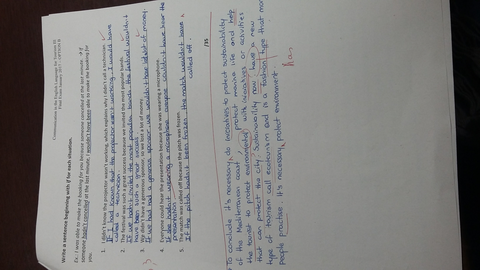 Communication in the English Language for Tourism III
Write a sentence beginning with if for each situation.
Ex: I was able to make the booking for you because someone cancelled at the last minute. → If
someone hadn't cancelled at the last minute, I wouldn't have been able to make the booking for
you.
1. I didn't know the projector wasn't working, which explains why I didn't call a technician.
If I had known that the projector wasn't working, I would have
called a technician.
2. The festival was such a great success because we invited the most popular bands.
If we hadn't invited the most popular bands the festival wouldn't
have been such a great success
3. We didn't have a generous sponsor, so we lost a lot of money.
If we had had a generous sponsor we wouldn't have lost a lot of money.
4. Everyone could hear the presentation because she was wearing a microphone.
If she hadn't wearing a microphone everyone couldn't have hear the
presentation
5. The match was called off because the pitch was frozen.
If the pitch hadn't been frozen the match wouldn't have
called off.
/35
To conclude it's necessary, do iniciatives to protect sustainability
of the Mediterranean coast, protect marine life and help
the tourist to protect environmental with iniciatives or activities
that can protect the city. Sustainability now have a new
type of tourism call ecotourism and is a tips that more
people practise it's necessary protect environment
has